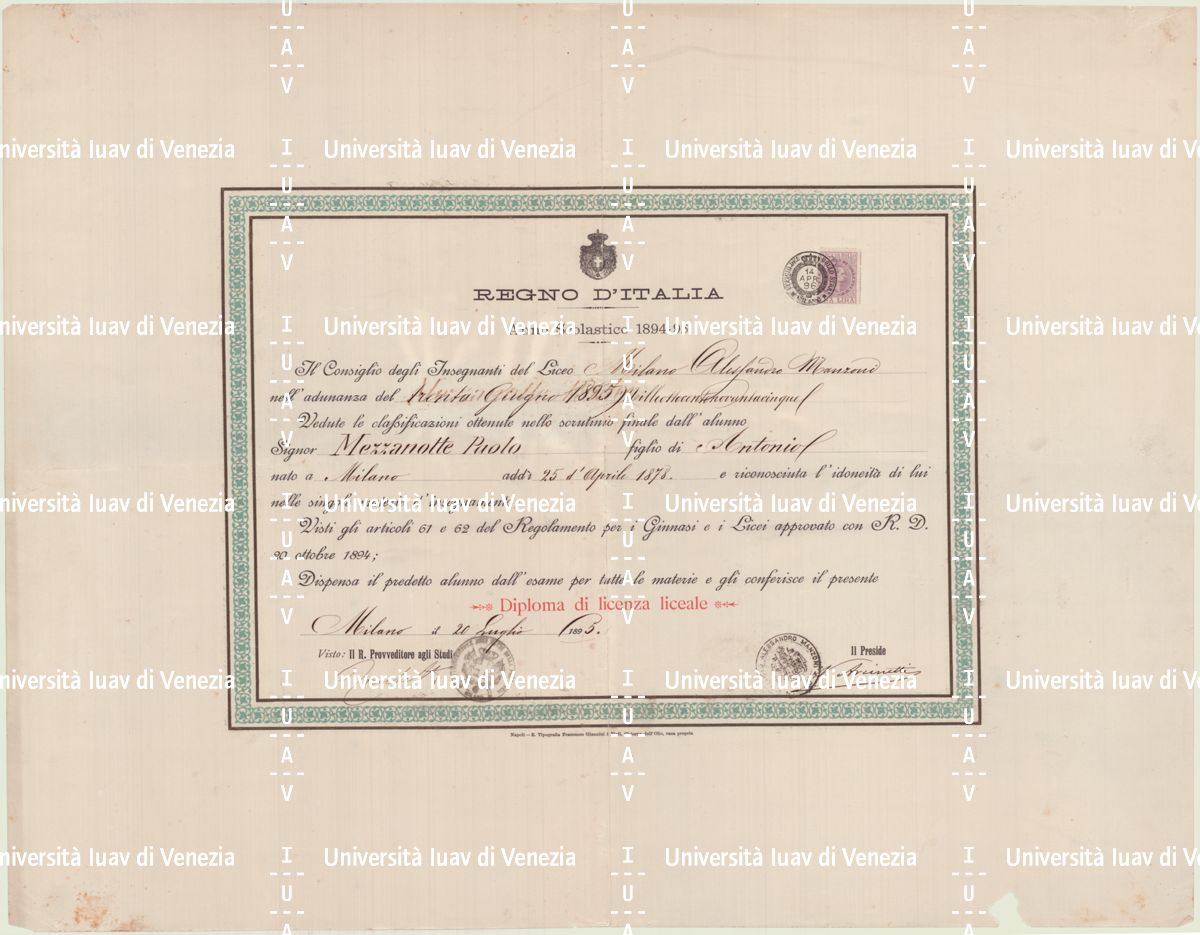 REGNO D'ITALIA
Anno Scolastico 1894-95
Il Consiglio degli Insegnanti del Liceo Milano Alessandro Manzoni
nell'adunanza del trenta Giugno 1895 millottocentonovantacinque
Vedute le classificazioni ottenute nello scrutinio finale dall'alunno
Signor Mezzanotte Paolo figlio di Antonio
nato a Milano addì 25 d'Aprile 1878. e riconosciuta l'idoneità di lui
nelle singole materie d'insegnamento
Visti gli articoli 61 e 62 del Regolamento per i Ginnasi e i Licei approvato con R. D.
20 ottobre 1894;
Dispensa il predetto alunno dall'esame per tutte le materie e gli conferisce il presente
Diploma di licenza liceale
Milano il 20 Luglio 1895.
Visto: Il R. Provveditore agli Studi
Il Preside
14
APR
96
ALESSANDRO MANZONI
LIRA
Napoli — R. Tipografia Francesco Giannini
casa propria
Università Iuav di Venezia
I
U
A
V